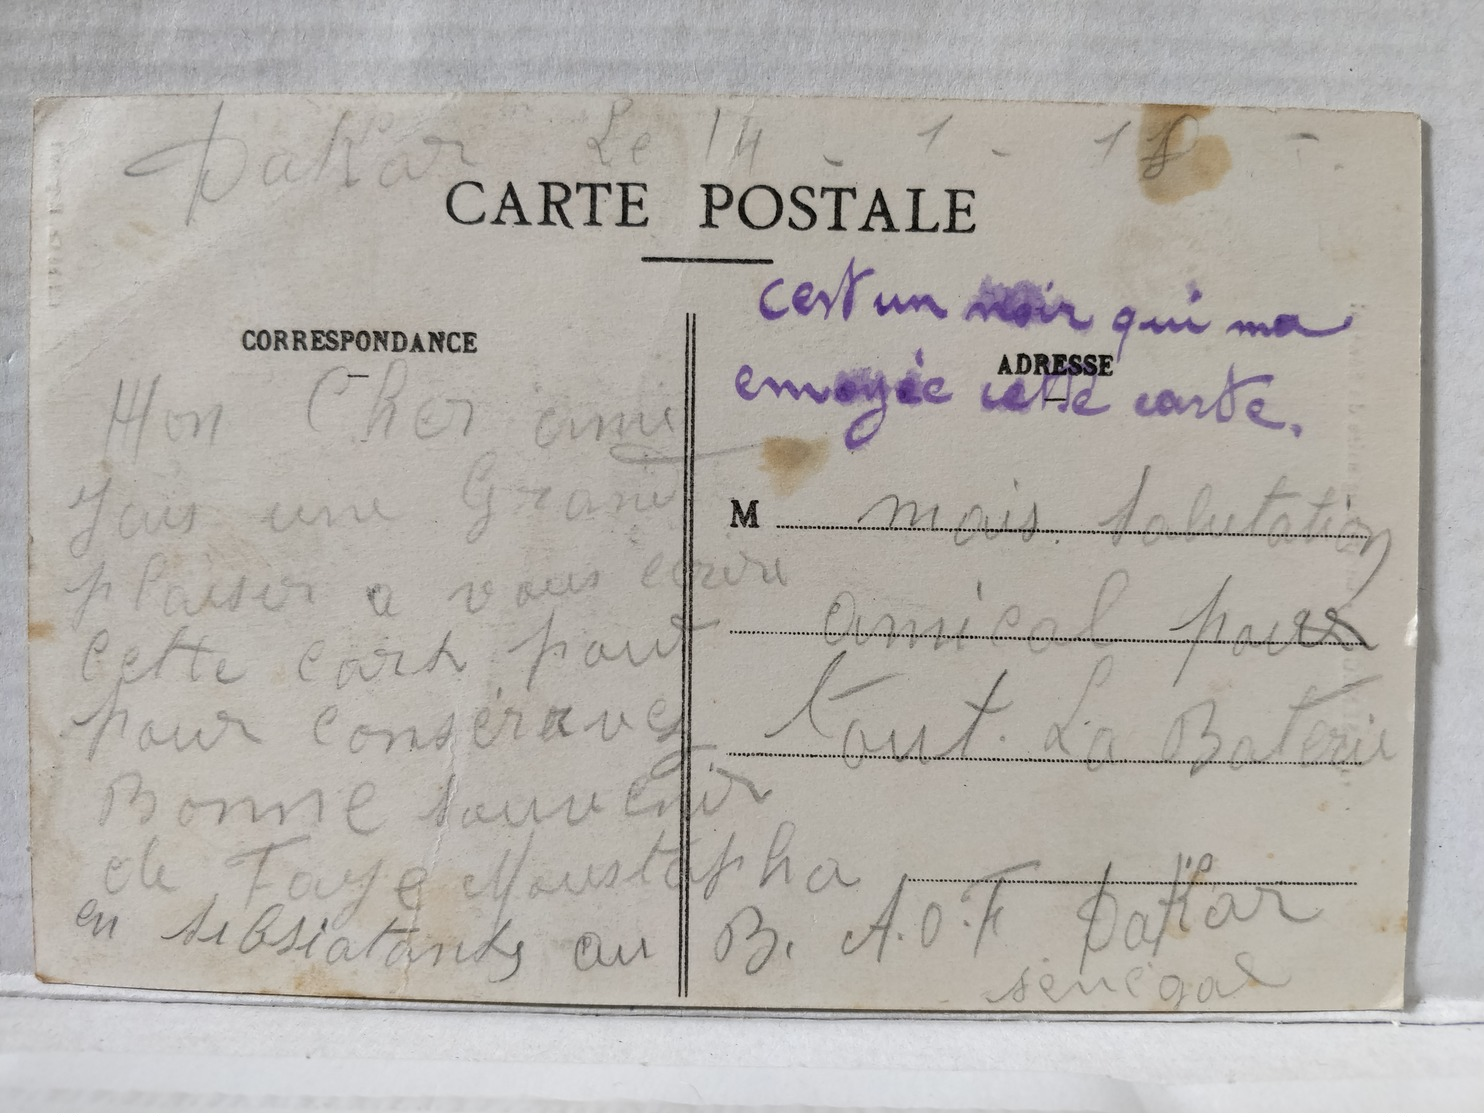 Dakar Le 14 - 1 - 18 -
CARTE POSTALE
CORRESPONDANCE
Mon Cher ami
Jais une Grand
plaisir a vous ecrire
cette cart pour
pour conserver
Bonne souvenir
de Faye Moustapha
en subsiatants au B. A.O.F Dakar
senégal
cest un noir qui ma
ADRESSE
envoyée cette carte.
M mais salutation
amical pour
tout. La Baterie